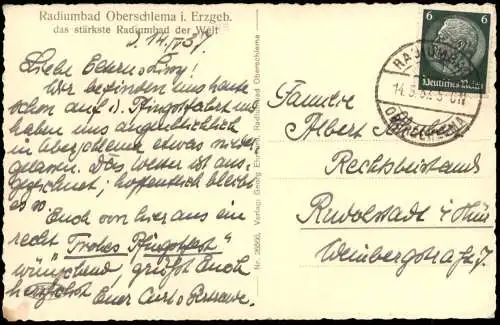 Radiumbad Oberschlema i. Erzgeb.
das stärkste Radiumbad der Welt
d. 14./V 37.
Liebe
Wir befinden uns heute
schon auf d. Pfingstfahrt und
haben uns augenblicklich
in Oberschlema etwas nieder
gelassen. Das Wetter ist aus-
gezeichnet, hoffentlich bleibt
es so.
Euch von hier aus ein
recht "Frohes Pfingstfest"
wünschend, grüßt Euch
herzlichst Euer Curt u
Nr. 26892. Verlag: Georg Radiumbad Oberschlema
6 6
Deutsches Reich
RADIUMBAD
14.5.37
OBERSCHLEMA
Familie
Albert
Rechtsbeistand
Rudolstadt i Thür
Weinbergstraße 7.